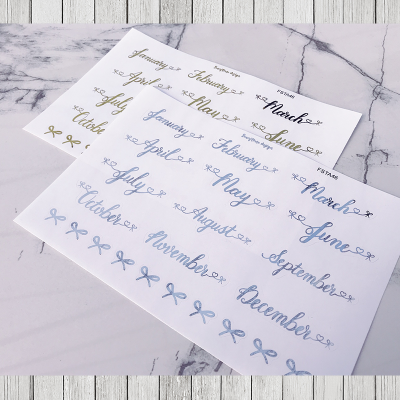 January February March
April May June
July
October
January February March
April May June
July August September
October November December
FSTAM6